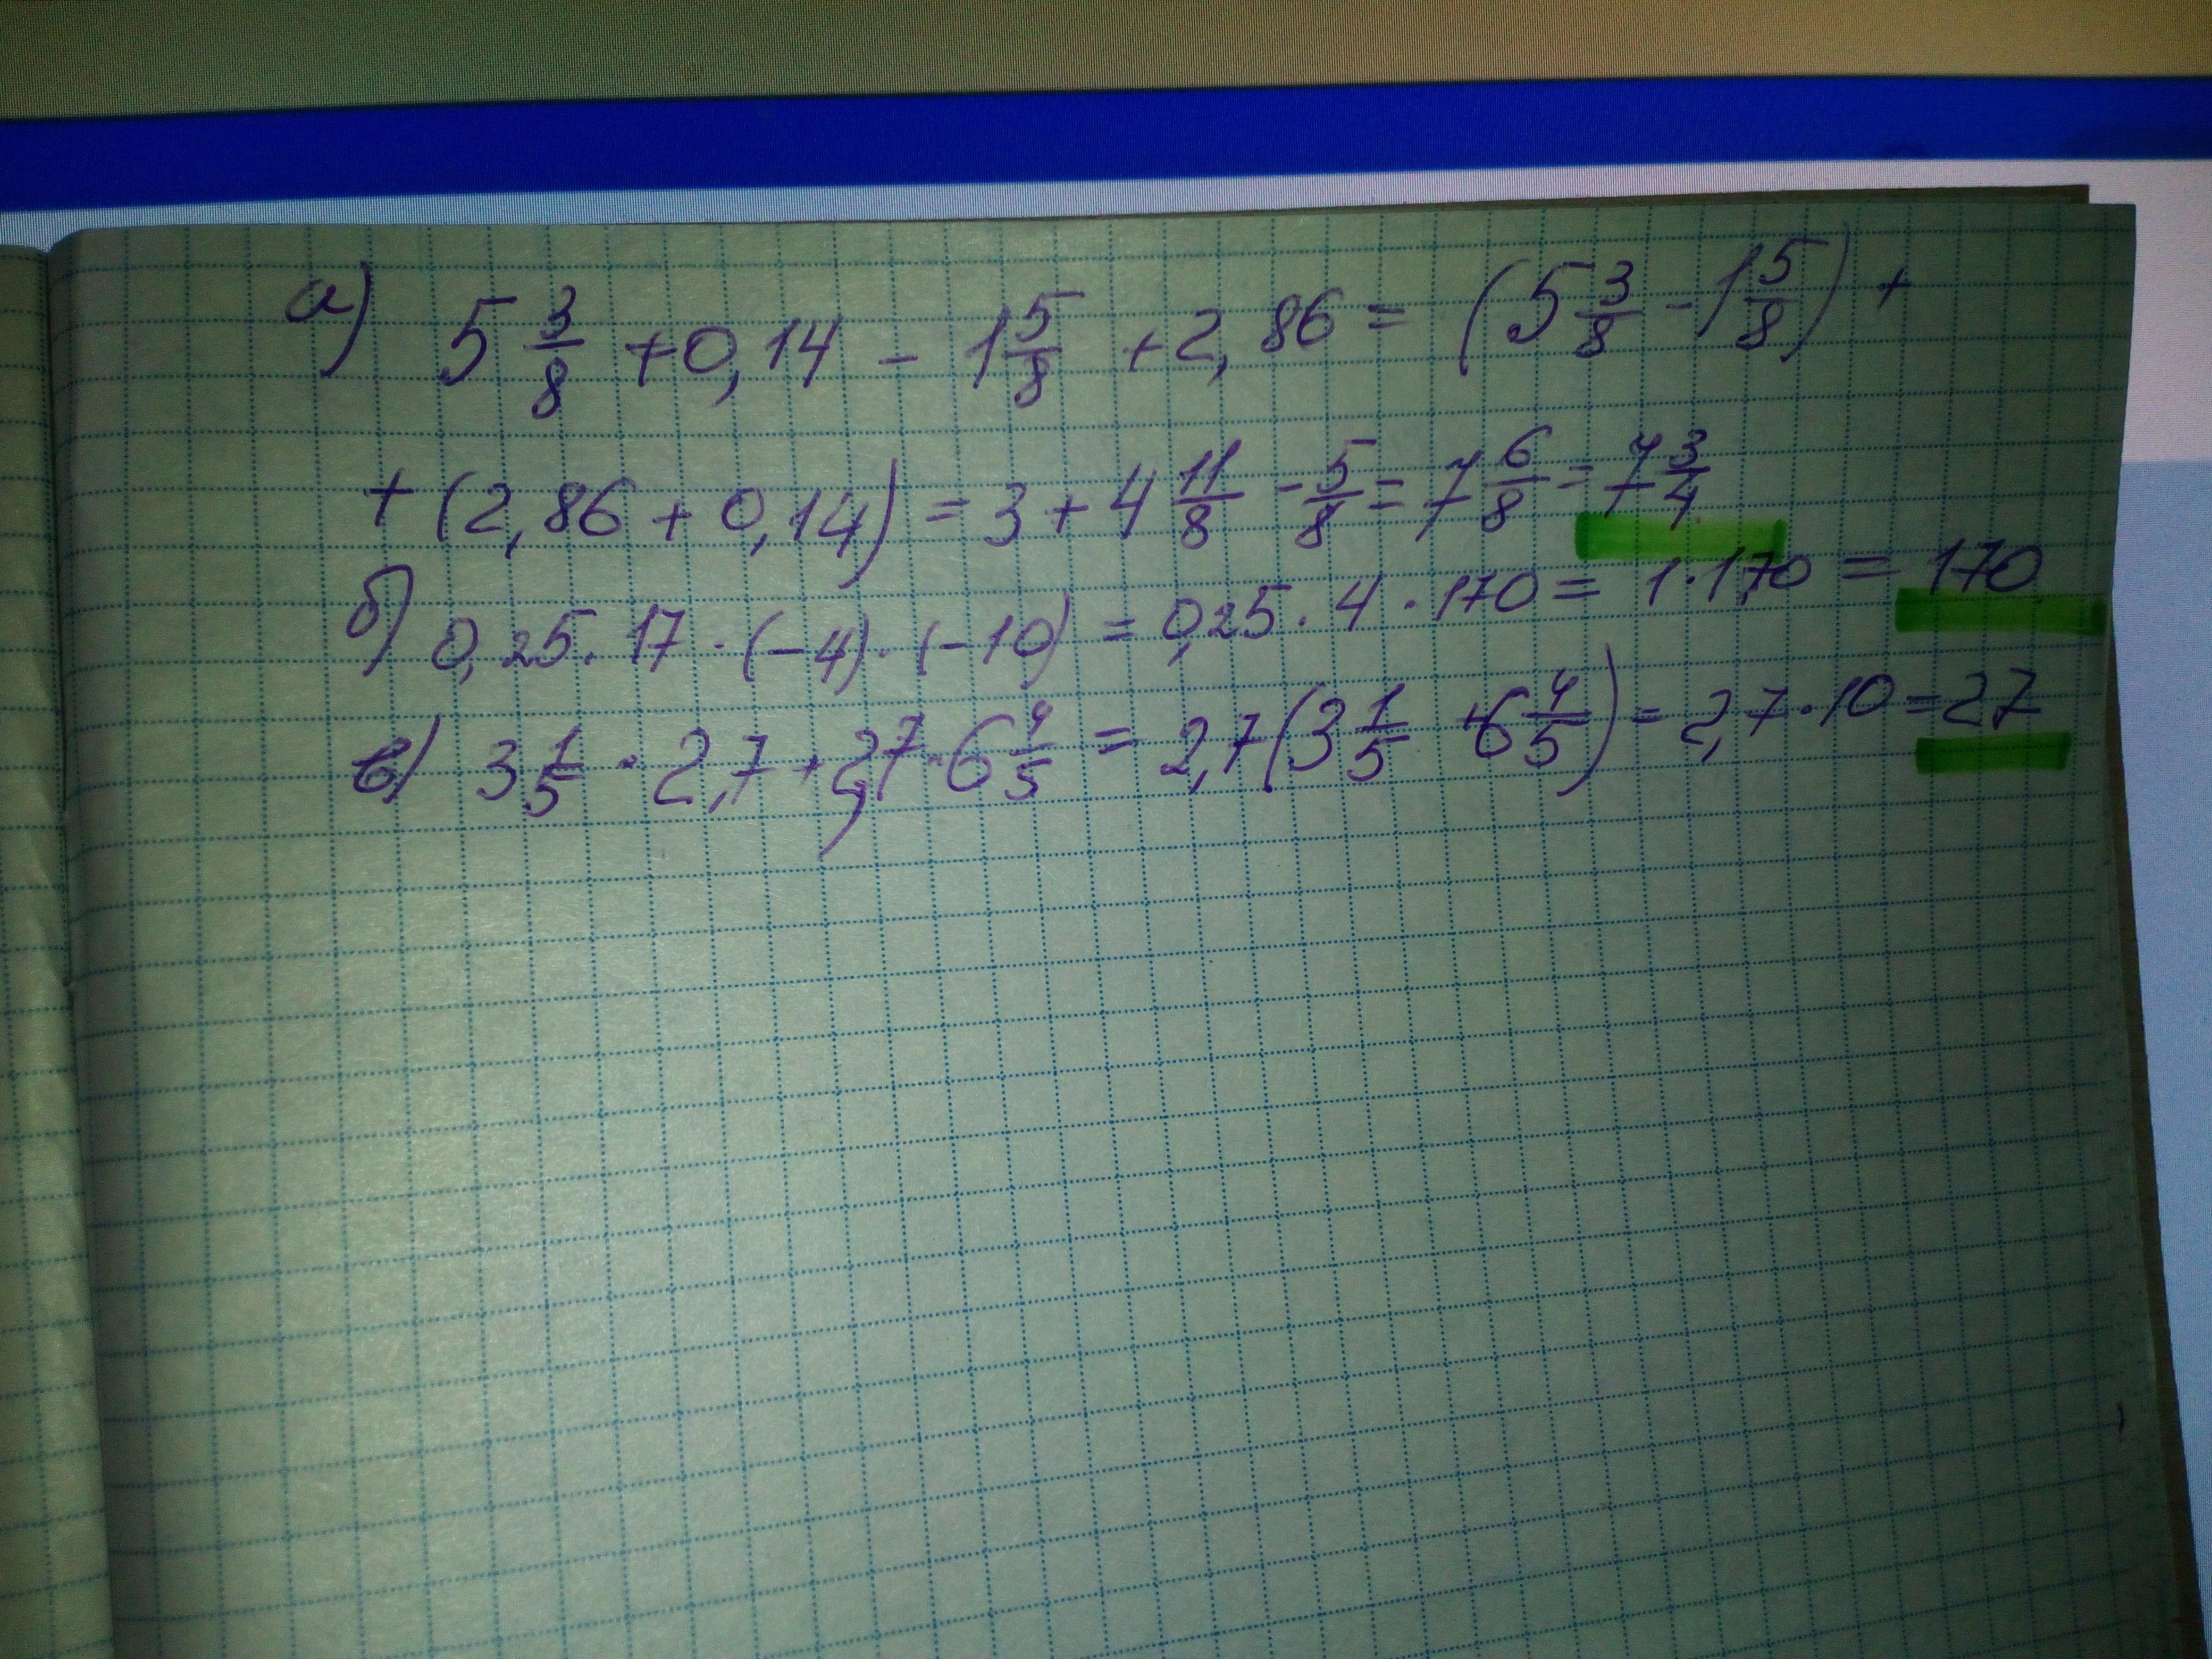 а) 5 3/8 + 0,14 - 1 5/8 + 2,86 = (5 3/8 - 1 5/8) +
+ (2,86 + 0,14) = 3 + 4 11/8 - 5/8 = 7 6/8 = 7 3/4
б) 0,25 · 17 · (-4) · (-10) = 0,25 · 4 · 170 = 1 · 170 = 170
в) 3 1/5 · 2,7 + 2,7 · 6 4/5 = 2,7 (3 1/5 + 6 4/5) = 2,7 · 10 = 27